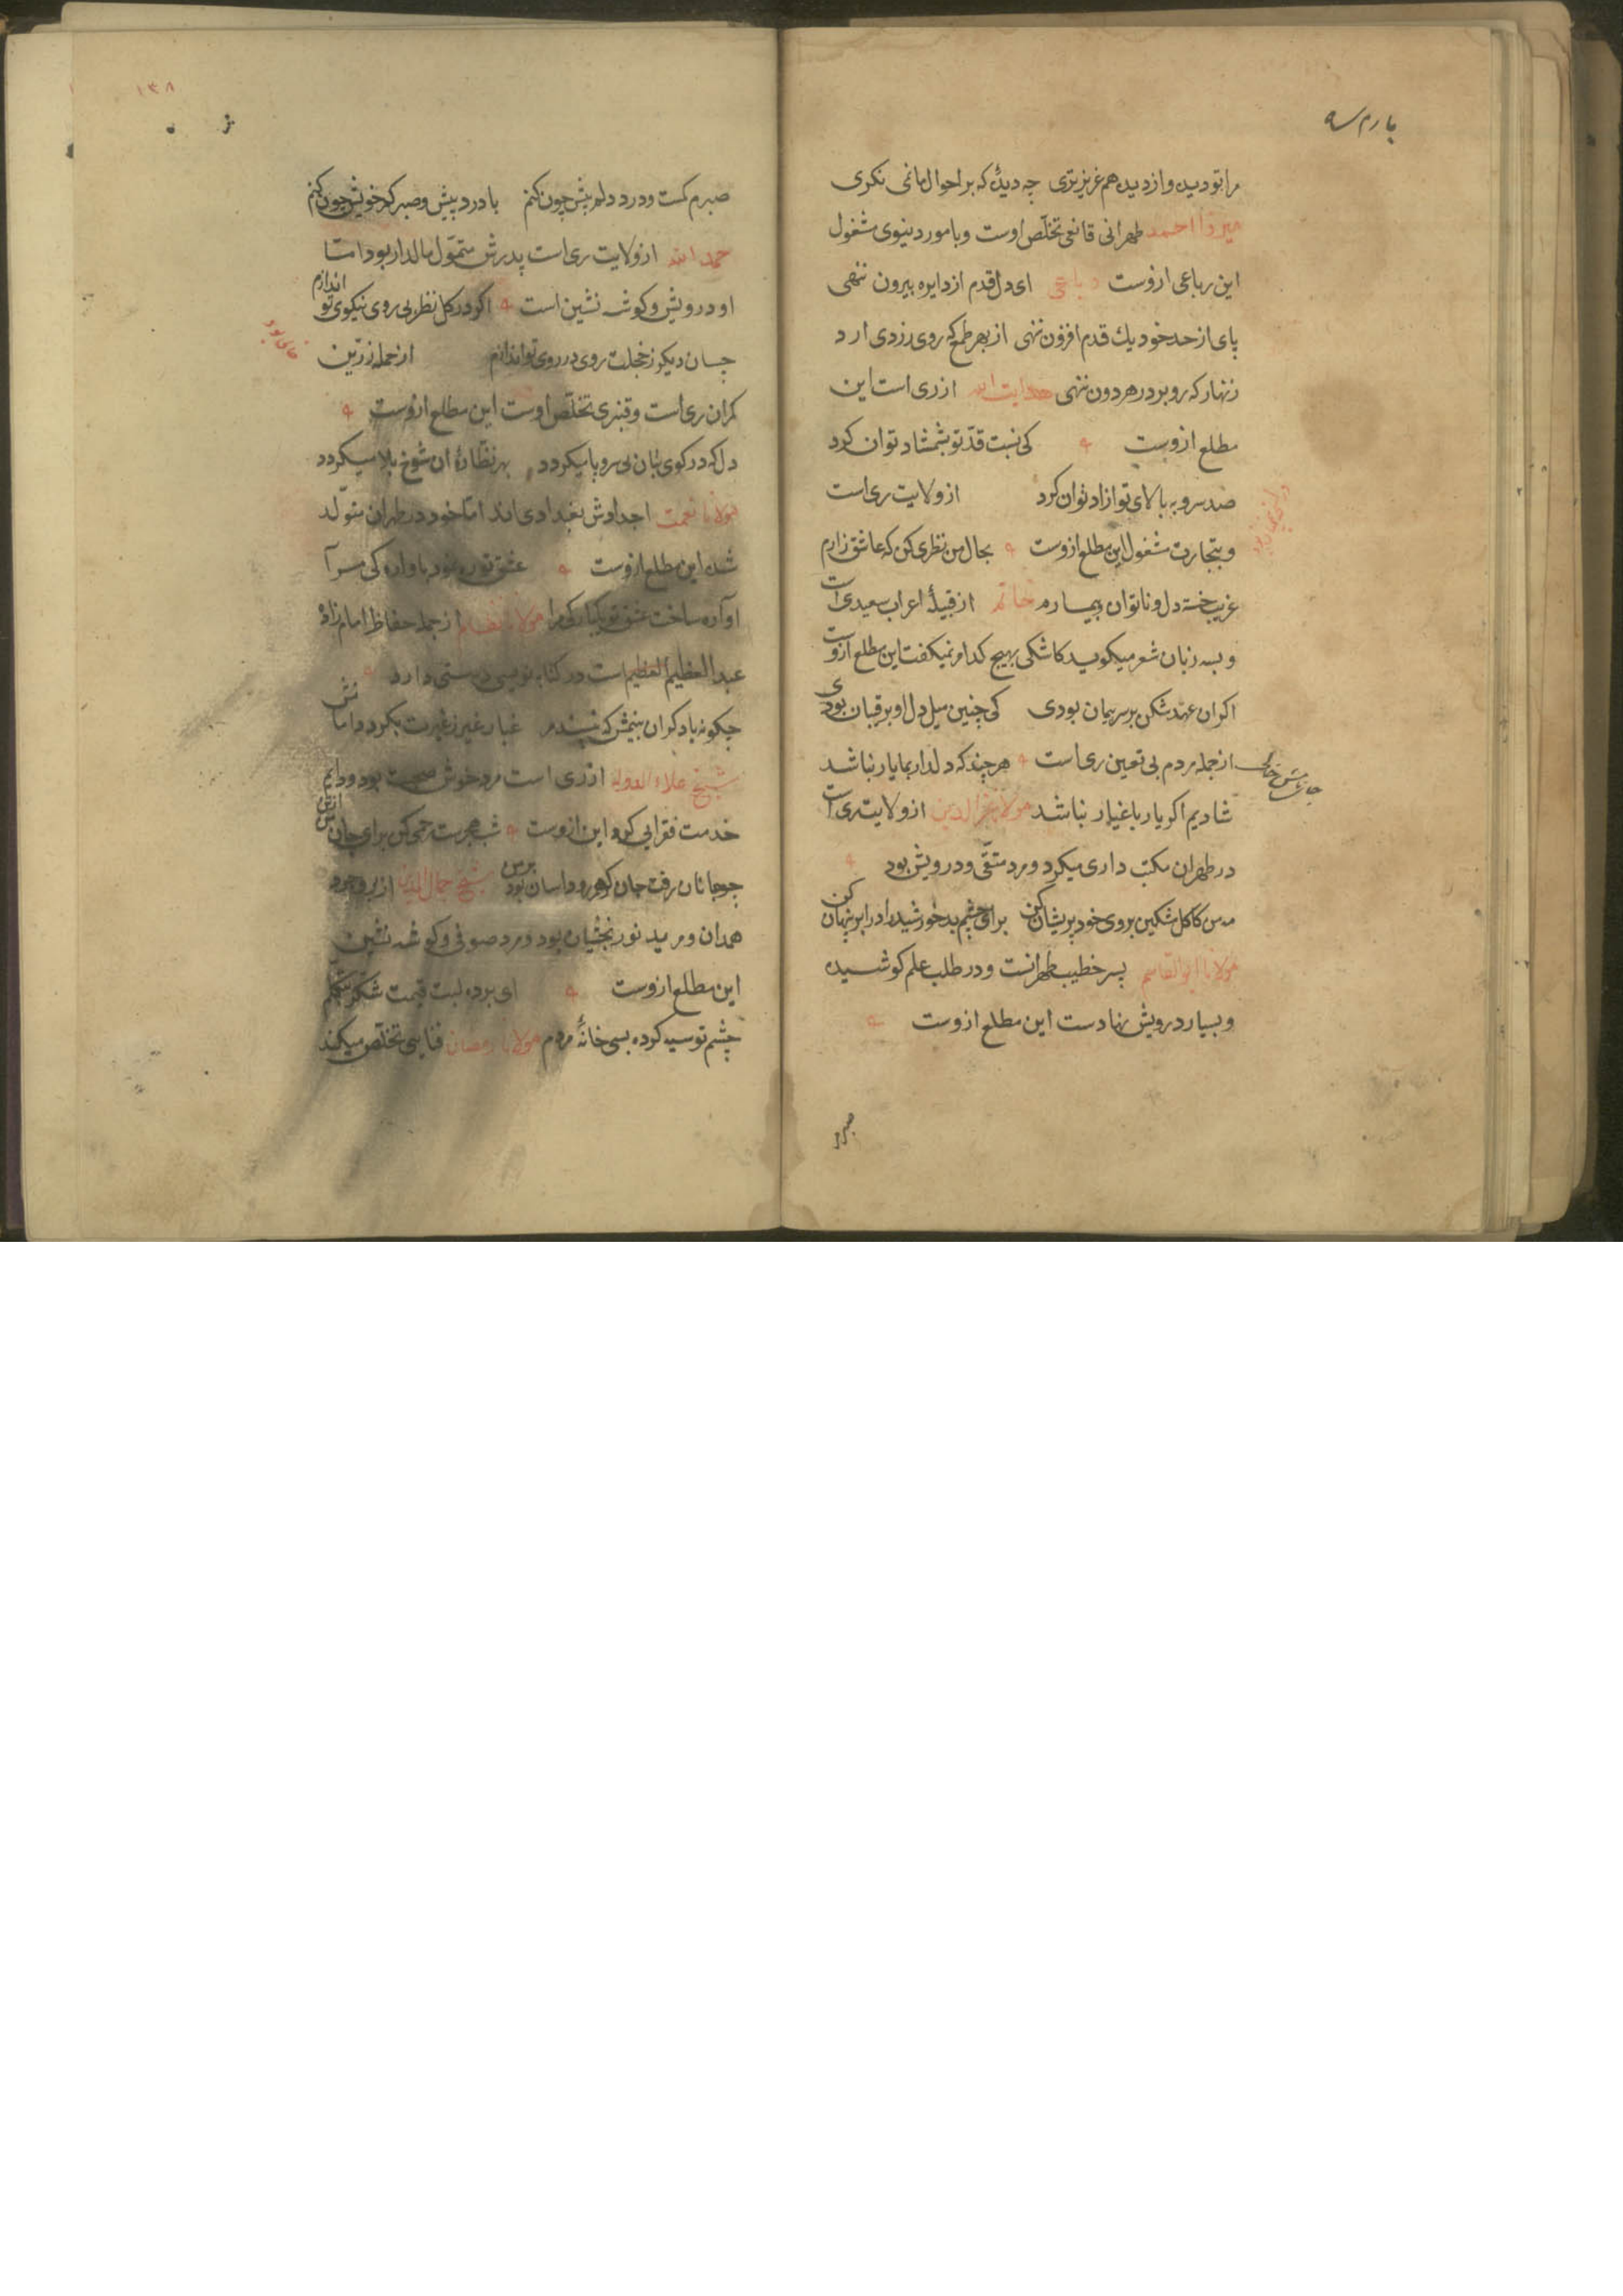 مرا تو دیده و از دیده هم عزیزتری چه دیدهٔ که بر احوال ما نمی نکری
میرزا احمد طهرانی قانعی تخلّص اوست و بامور دنیوی مشغول
این رباعی ازوست رباعی ای دل قدم از دایره بیرون ننهی
پای از حد خود یك قدم افزون ننهی از بهر طمع که روی زردی ارد
زنهار که رو بر در هر دون ننهی هدایت الله از ری است این
مطلع ازوست کی نسبت قدّ تو بشمشاد توان کرد
صد سرو به بالای تو ازاد توان کرد از ولایت ری است
و بتجارت مشغول این مطلع ازوست بحال من نظری کن که عاشق زارم
غریب خسته دل و ناتوان و بیمارم حاتم از قبیلهٔ اعراب سعیدی است
و بسه زبان شعر میکوید کاشکی بهیچ کدام نمیکفت این مطلع ازوست
اکر ان عهد شکن بر سر پیمان بودی کی چنین میل دل او برقیبان بودی
از جمله مردم بی تعین ری است هر چند که دلدار بما یار نباشد
شادیم اکر یار باغیار نباشد مولانا فخرالدین از ولایت ری است
در طهران مکتب داری میکرد و مرد متّقی و درویش بود
مه من کاکل مشکین بروی خود پریشان کن برای چشم بد خورشید را در ابر پنهان کن
مولانا ابوالقاسم پسر خطیب طهرانست و در طلب علم کوشیده
و بسیار درویش نهادست این مطلع ازوست
صبرم
۱۳۸
صبرم کمست و درد دلم بیش چون کنم با درد بیش و صبر کم خویش چون کنم
حمد الله از ولایت ری است پدرش متموّل مالدار بود امّا
او درویش و کوشه نشین است اکر در کل نظر بی روی نیکوی تو اندازم
چسان دیکر ز خجلت روی در روی تو اندازم از جمله زرّین
کمران ری است و قنبری تخلّص اوست این مطلع ازوست
دل که در کوی بتان بی سر و پا میکردد بهر نظّارهٔ ان شوخ بلا میکردد
مولانا نعمت اجدادش بغدادی اند امّا خود در طهران متولّد
شده این مطلع ازوست عشق تو ره نمود باواره کی مرا
آواره ساخت عشق تو یکبارکی مرا مولانا نظام از جمله حفاظ امام زاده
عبد العظیم العظیم است در کتابه نویسی دستی دارد
چکونه با دکران بینمش که نپسندم غبار غیر ز غیرت بکرد دامانش
شیخ علاء الدوله از ری است مرد خوش صحبت بود و دایم
خدمت فقرا بی کرد این ازوست شب هجرست رحمی کن برای جان
چو جانان رفت جان کو هم رود اسان بود شیخ جمال الدین از بروجرد
همدان و مرید نور بخشیان بود و مرد صوفی و کوشه نشین
این مطلع ازوست ای برده لبت قیمت شکّر بتکلّم
چشم تو سیه کرده بسی خانهٔ مردم مولانا رمضان فنایی تخلّص میکند